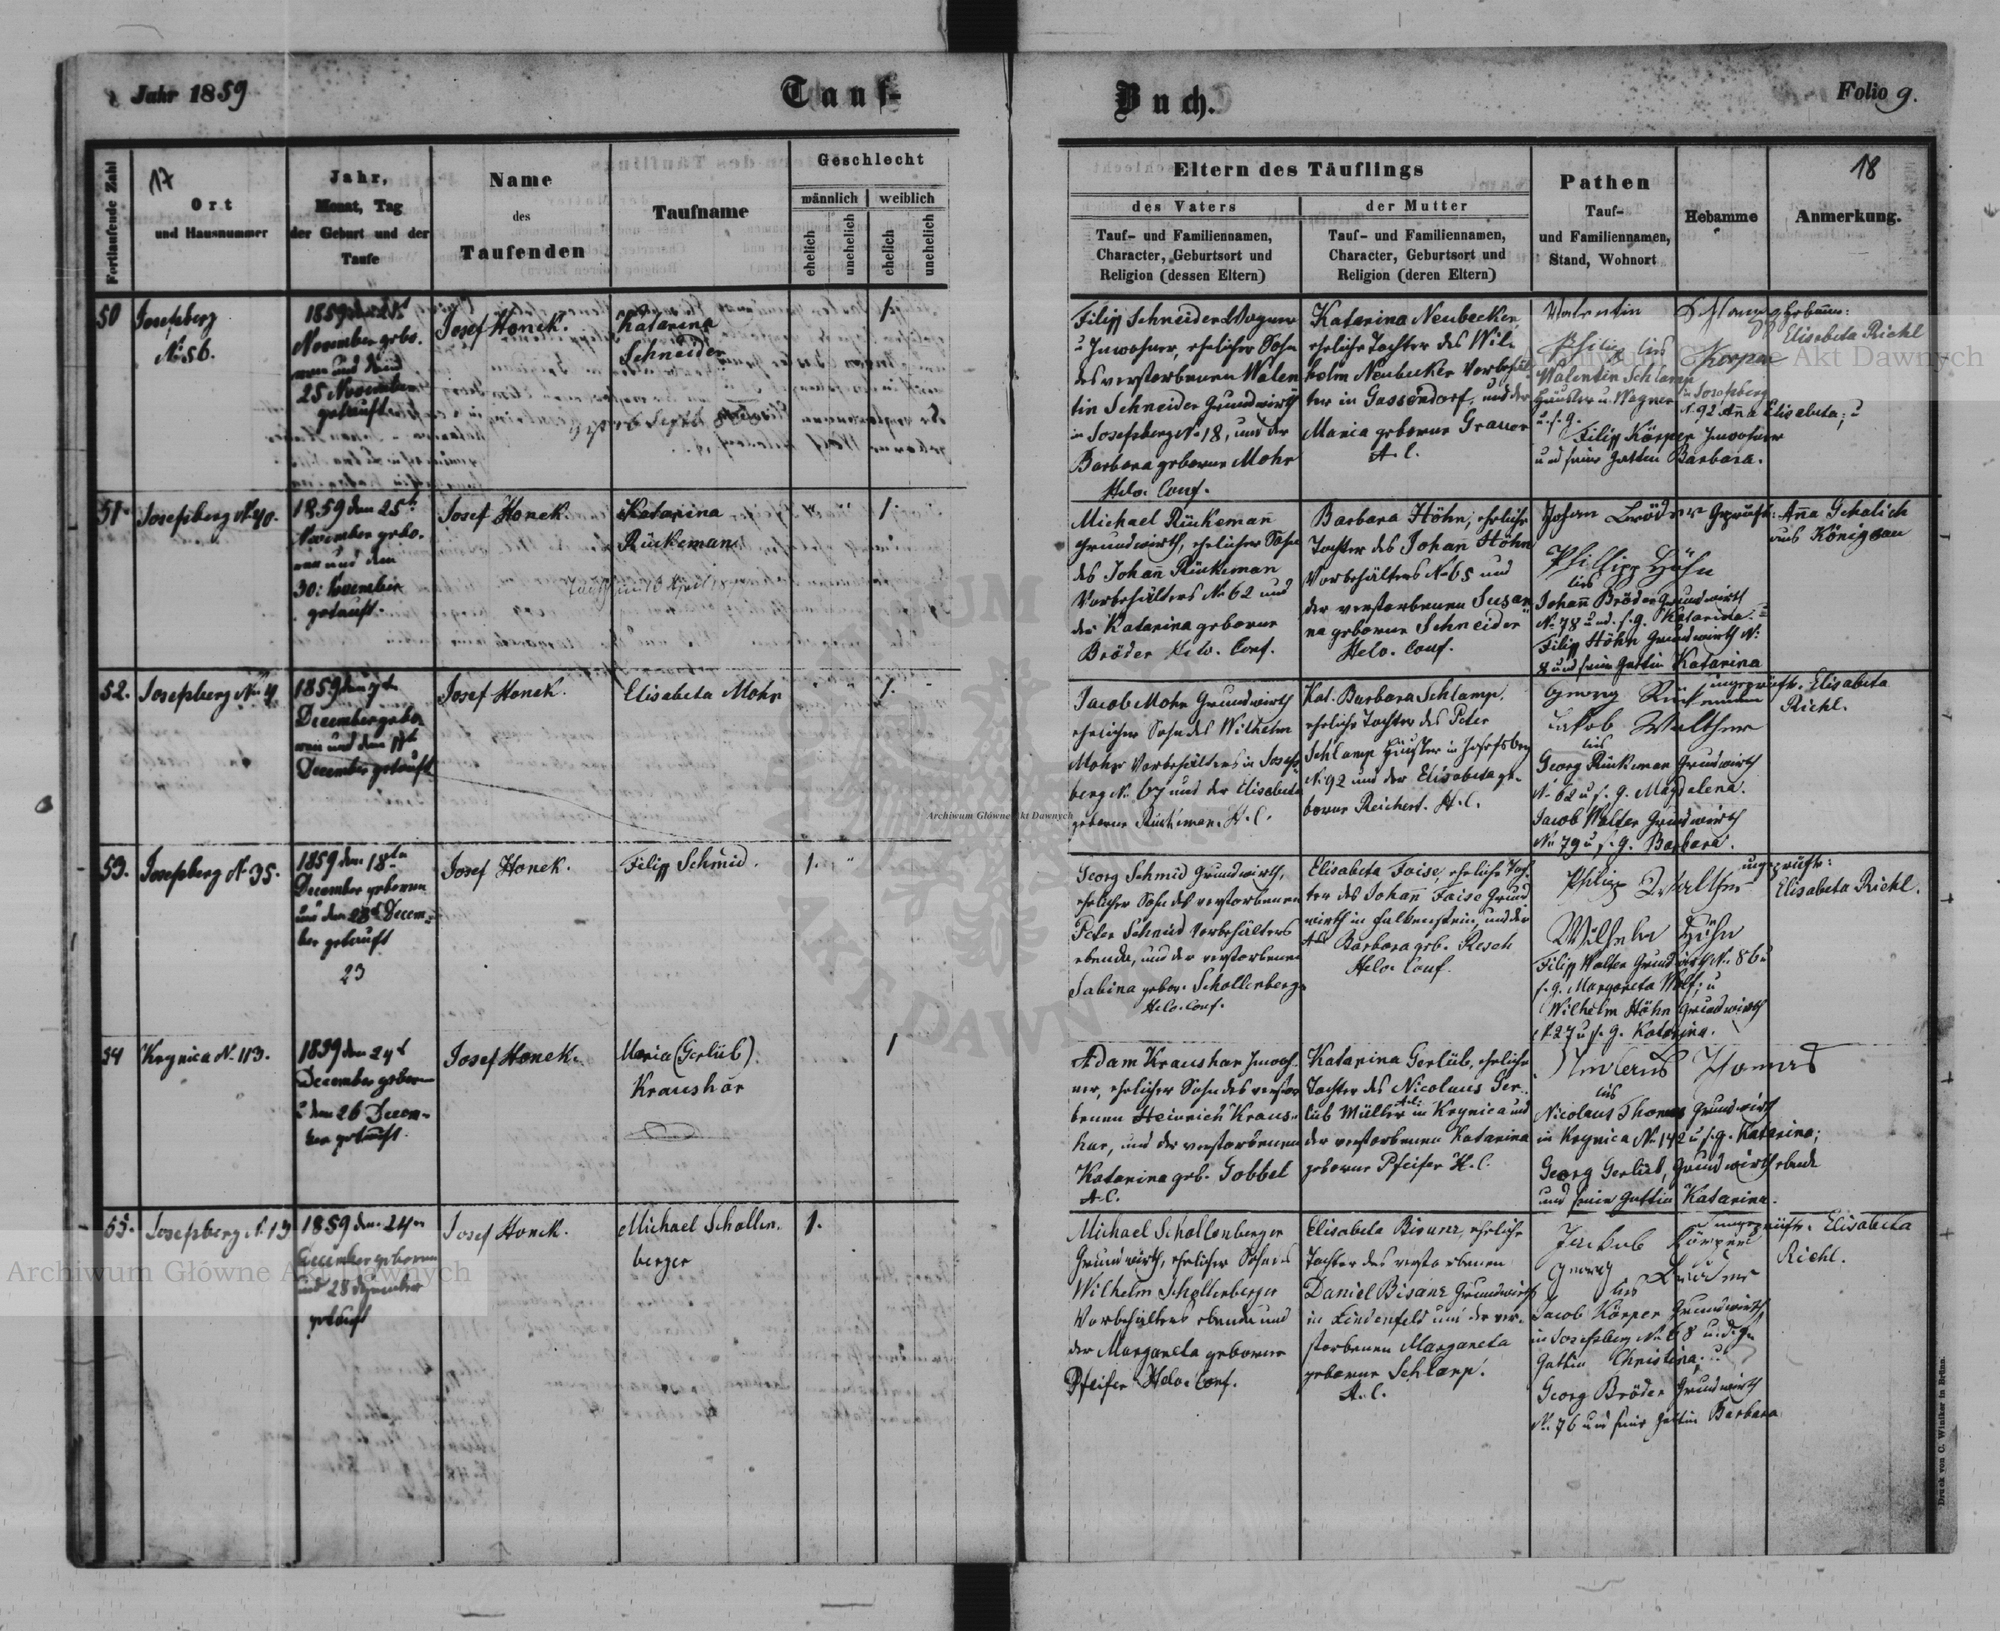 Jahr 1859
Tauf-
Buch.
Folio 9.
Fortlaufende Zahl
17
Ort
und Hausnummer
Jahr,
Monat, Tag
der Geburt und der
Taufe
Name
des
Taufenden
Taufname
Geschlecht
männlich
weiblich
ehelich
unehelich
ehelich
unehelich
Eltern des Täuflings
des Vaters
der Mutter
Tauf- und Familiennamen,
Character, Geburtsort und
Religion (dessen Eltern)
Tauf- und Familiennamen,
Character, Geburtsort und
Religion (deren Eltern)
Pathen
Tauf-
und Familiennamen,
Stand, Wohnort
Hebamme
18
Anmerkung.
50
Josefsberg
No 56.
1859 den
November gebo-
ren und den
25 November
getauft
Josef Honek.
Katarina
Schneider
1.
Filipp Schneider Wagner
u Inwohner, ehelicher Sohn
des verstorbenen Walen
tin Schneider Grundwirth
in Josefsberg No 18, und der
Barbara geborne Mohr
Helv. Conf.
Katarina Neubecker,
eheliche Tochter des Wil-
helm Neubecker Vorbehäl-
ter in Gassendorf, und der
Maria geborne
A. C.
Valentin Schlamp
Philip
Körper
Walentin Schlamp
Häusler u. Wagner in Josefsberg
N. 92 Anna Elisabeta; u
Filipp Körper Inwohner
und seine Gattin Barbara.
Elisabeta Riehl
51.
Josefsberg No 40.
1859 den 25t
November gebo-
ren und den
30: November
getauft.
Josef Honek.
Katarina
Rückeman
1.
Michael Rückemann
Grundwirth, ehelicher Sohn
des Johann Rückeman
Vorbehälters No 62 und
der Katarina geborne
Bröder Helv. Conf.
Barbara Höhn, eheliche
Tochter des Johann Höhn
Vorbehälters No 65 und
der verstorbenen Susan
na geborne Schneider
Helv. Conf.
Johan Bröder
Philipp Höhn
Johann Bröder Grundwirth
No 78 und s. g. Katarina; u
Filipp Höhn Grundwirth No
8 und seine Gattin Katarina
geprüfte: Anna Schalich
aus Königsau
52.
Josefsberg No 4.
1859 den 7ten
December gebo-
ren und den
December getauft
Josef Honek.
Elisabeta Mohr
1.
Jacob Mohr Grundwirth
ehelicher Sohn des Wilhelm
Mohr Vorbehälters in Josefs-
berg No 67 und der Elisabeta
geborne Rückeman. H. C.
Kat. Barbara Schlamp,
eheliche Tochter des Peter
Schlamp Häusler in Josefsberg
No 92 und der Elisabeta ge-
borne Reichert. H. C.
Georg Rückemann
Jakob Walther
Georg Rückeman Grundwirth
N. 62 u. s. g. Magdalena.
Jacob Walter Grundwirth
No 79 u s. g. Barbara.
ungeprüfte. Elisabeta
Riehl.
53.
Josefsberg No 35.
1859 den 18ten
December geboren
und den 23t Decem-
ber getauft
23
Josef Honek.
Filipp Schmid.
1.
Georg Schmid Grundwirth,
ehelicher Sohn des verstorbenen
Peter Schmid Vorbehälters
ebenda, und der verstorbenen
Sabina gebor. Schollenberg.
Helv. Conf.
Elisabeta Faise, eheliche Toch-
ter des Johann Faise Grund
wirth in Falkenstein, und der
Barbara geb. Resch
Helv. Conf.
Philipp Walther
Wilhelm Höhn
Filipp Walter Grundwirth N. 86 u
s. g. Margareta Wolf; u
Wilhelm Höhn Grundwirth
N. 27 u s. g. Katarina.
ungeprüfte:
Elisabeta Riehl.
54
Krynica No 113.
1859 den 24t
December geboren
u den 26 Decem-
ber getauft.
Josef Honek.
Maria (Gerlüb)
Kraushar
1
Adam Kraushar Inwoh-
ner, ehelicher Sohn des verstor
benen Heinrich Kraus-
har, und der verstorbenen
Katarina geb. Gobbel
A. C.
Katarina Gerlüb, eheliche
Tochter des Nicolaus Ger-
lüb Müller in Krynica und
der verstorbenen Katarina
geborne Pfeifer H. C.
Nicolaus Thomas Grundwirth
in Krynica No 142 u s. g. Katarina;
Georg Gerlüb, Grundwirth ebenda
und seine Gattin Katarina.
55.
Josefsberg N. 13
1859 den 24ten
December geboren
und 28 Dezember
getauft
Josef Honek.
Michael Schollen-
berger
1.
Michael Schollenberger
Grundwirth, ehelicher Sohn des
Wilhelm Schollenberger
Vorbehälters ebenda und
der Margareta geborne
Pfeifer Helv. Conf.
Elisabeta Bisanz, eheliche
Tochter des verstorbenen
Daniel Bisanz Grundwirth
in Lindenfeld und der ver-
storbenen Margareta
geborne Schlamp.
A. C.
Jackob Körper
Georg Bröder
Jacob Körper Grundwirth
in Josefsberg No 68 und
Gattin Christina; u
Georg Bröder Grundwirth
No 76 und seine Gattin Barbara
ungeprüfte. Elisabeta
Riehl.
Archiwum Główne Akt Dawnych
Archiwum Główne Akt Dawnych
Archiwum Główne Akt Dawnych
Druck von C. Winiker in Brünn.